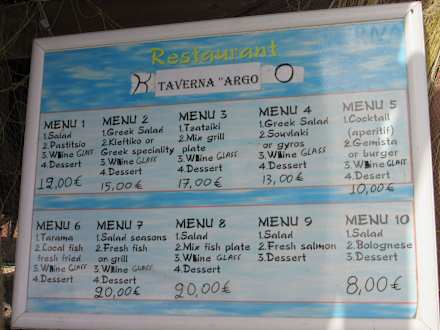 Restaurant
TAVERNA "ARGO
MENU 1
1.Salad
2.Pastitsio
3.Wine GLASS
4.Dessert
12,00€
MENU 2
1.Greek Salad
2.Kleftiko or
Greek speciality
3.Wine GLASS
4.Dessert
15,00€
MENU 3
1.Tzatziki
2.Mix grill
plate
3.Wine GLASS
4.Dessert
17,00€
MENU 4
1.Greek Salad
2.Souvlaki
or gyros
3.Wine GLASS
4.Dessert
13,00€
MENU 5
1.Cocktail
(aperitif)
2.Gemista
or burger
3.Wine GLASS
4.Dessert
10,00€
MENU 6
1.Tarama
2.Local fish
fresh fried
3.Wine GLASS
4.Dessert
MENU 7
1.Salad seasons
2.Fresh fish
on grill
3.Wine GLASS
4.Dessert
20,00€
MENU 8
1.Salad
2.Mix fish plate
3.Wine GLASS
4.Dessert
20,00€
MENU 9
1.Salad
2.Fresh salmon
3.Dessert
MENU 10
1.Salad
2.Bolognese
3.Dessert
8,00€